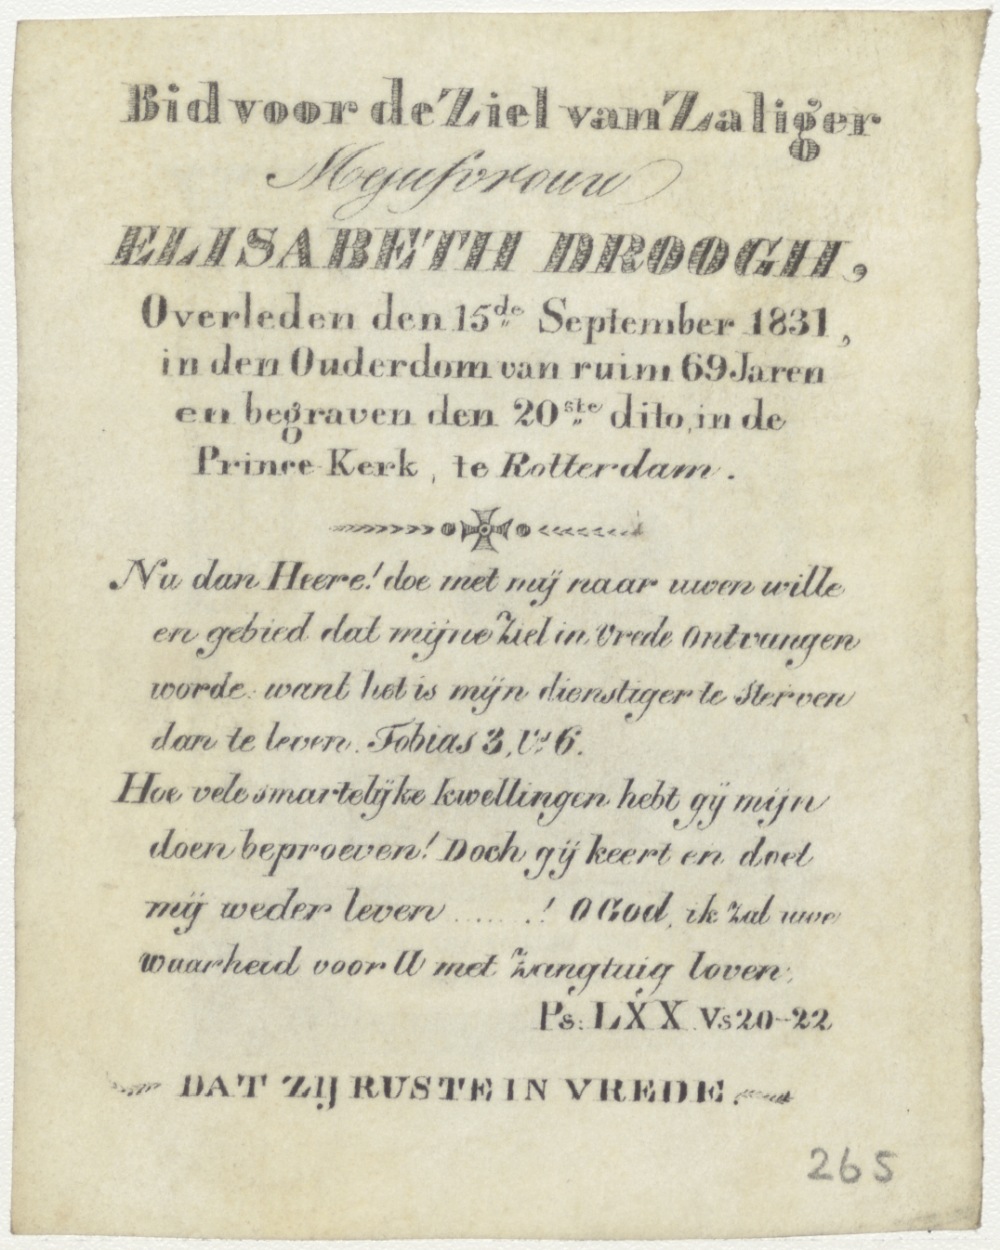 Bid voor de Ziel van Zaliger
Mejufvrouw
ELISABETH DROOGH,
Overleden den 15de September 1831,
in den Ouderdom van ruim 69 Jaren
en begraven den 20ste dito, in de
Prince Kerk, te Rotterdam.
Nu dan Heere! doe met mij naar uwen wille
en gebied dat mijne Ziel in Vrede Ontvangen
worde. want het is mijn dienstiger te Sterven
dan te leven. Tobias 3, Vs 6.
Hoe vele smartelijke kwellingen hebt gij mijn
doen beproeven! Doch gij keert en doet
mij weder leven ......! O God, ik Zal uwe
waarheid voor U met Zangtuig loven.
Ps: LXX Vs 20-22
DAT ZIJ RUSTE IN VREDE.
265